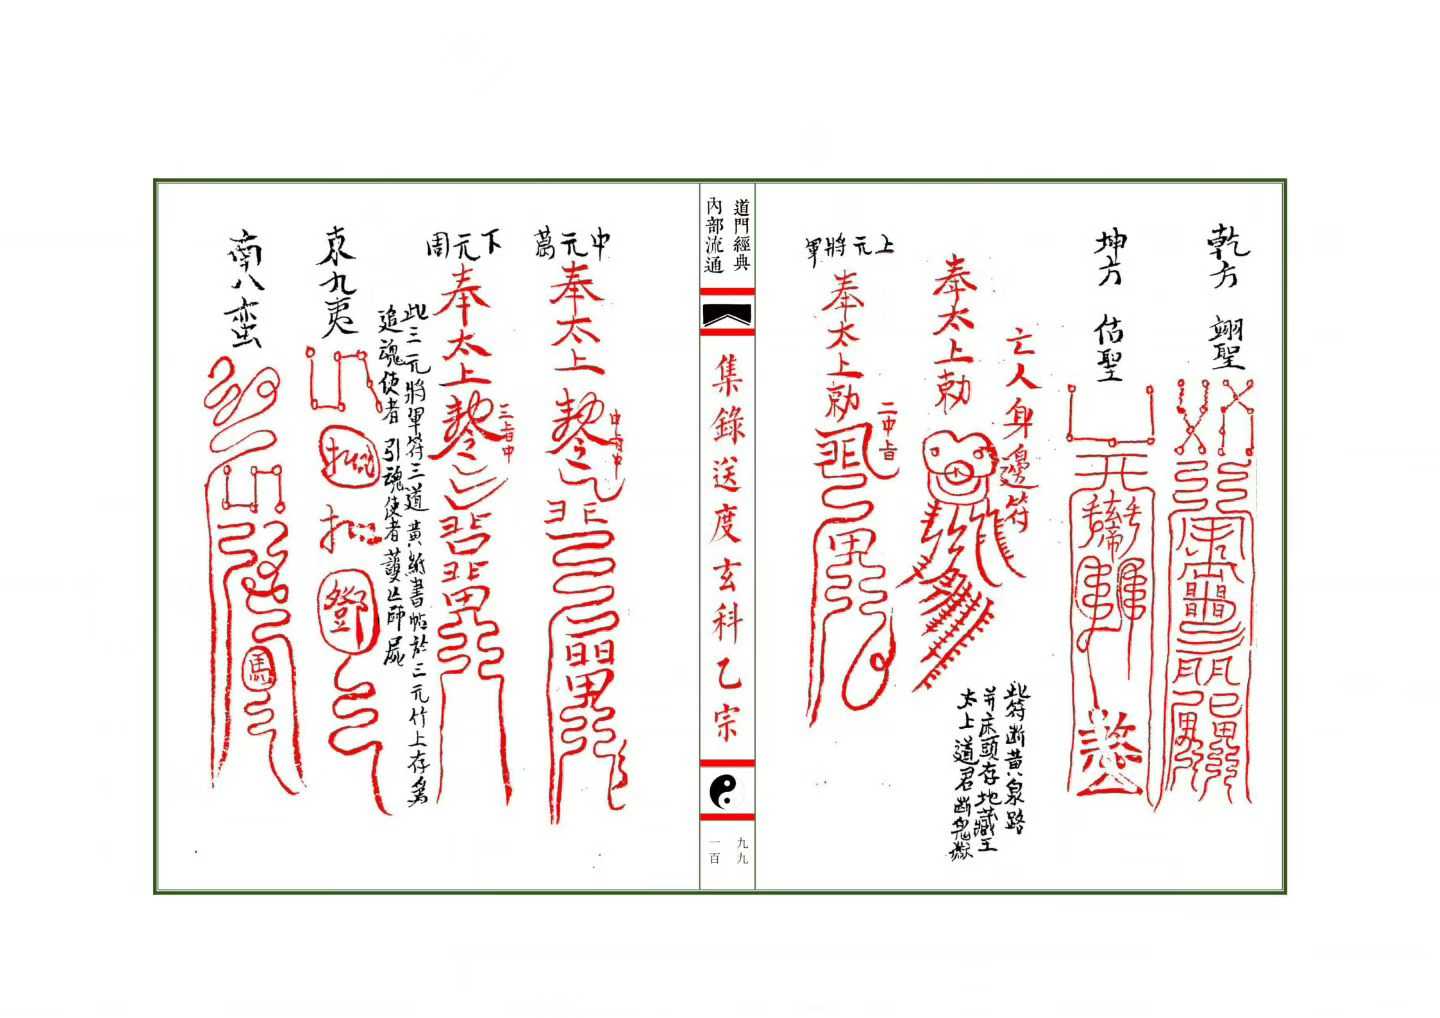 乾方 翊聖
坤方 佑聖
亡人身邊符
奉太上勅
此符斷黃泉路
并床頭存地藏王
太上道君斷鬼獄
上元將軍
奉太上勅
二中旨
道門經典
內部流通
集錄送度玄科乙宗
九九
一百
中元葛
奉太上
中旨中
下元周
奉太上
三旨中
此三元將軍符三道黃紙書帖於三元竹上存爲
追魂使者 引魂使者護亡師屍
東九夷
鄧
南八蛮
馬